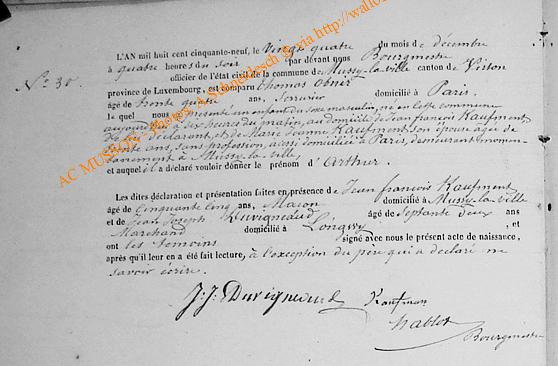 L'AN mil huit cent cinquante-neuf, le Vingt quatre du mois de décembre
à quatre heures du soir par devant nous Bourgmestre
N.º 30. officier de l'état civil de la commune de Mussy-la-ville canton de Virton
province de Luxembourg, est comparu Thomas
âgé de trente quatre ans, Serrurier domicilié à Paris.
le quel nous a présenté un enfant du sexe masculin, né en cette commune
aujourd'hui à six heures du matin, au domicile de Jean françois Kaufment
de lui déclarant, et de Marie Jeanne Kaufment son épouse âgée de
trente ans, sans profession, aussi domiciliée à Paris, demeurant momen-
tanément à Mussy-la-ville
et auquel il a déclaré vouloir donner le prénom d'Arthur.
Les dites déclaration et présentation faites en présence de Jean françois Kaufment
âgé de Cinquante cinq ans, Maçon domicilié à Mussy-la-ville
et de Jean Joseph Duvigneaud âgé de Septante deux ans
Marchand domicilié à Longwy, et
ont les témoins signé avec nous le présent acte de naissance,
après qu'il leur en a été fait lecture, à l'exception du père qui a déclaré ne
savoir écrire.
J: J: Duvigneaud Kaufman
Bourgmestre